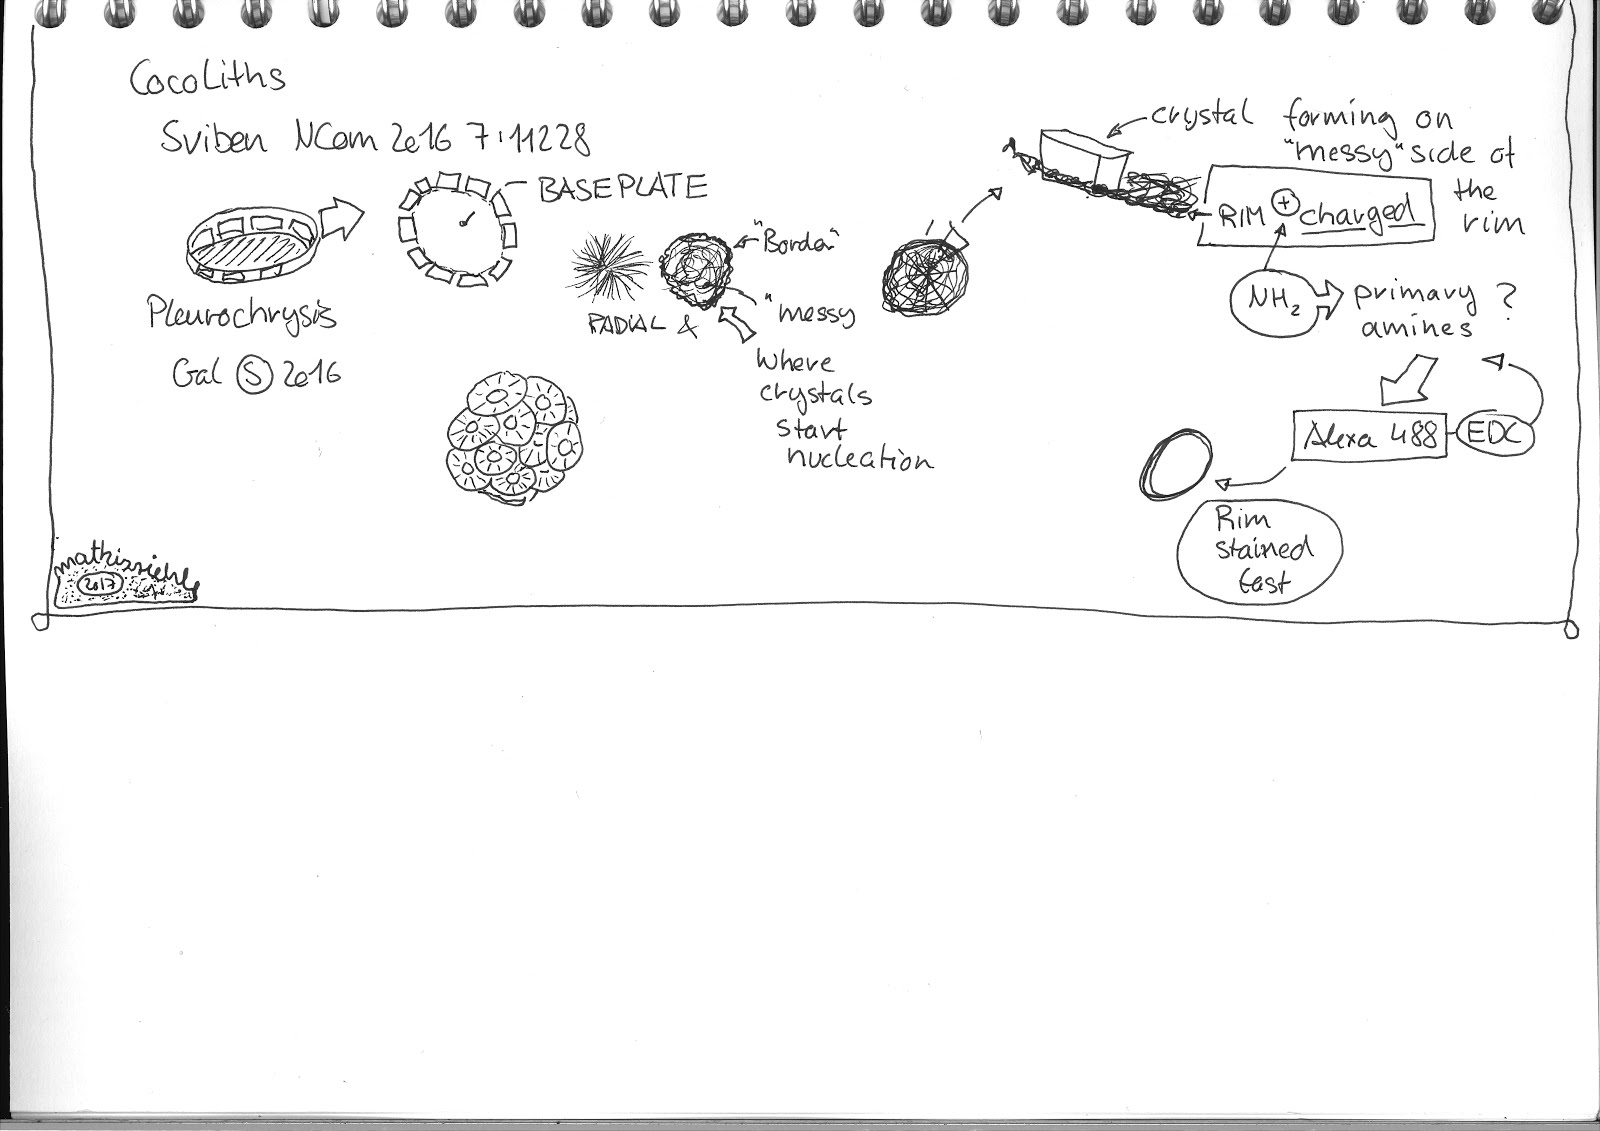 CocoLiths
Sviben NCom 2016 7:11228
BASEPLATE
Pleurochrysis
Gal S 2016
RADIAL &
"Border"
"messy
Where
crystals
start
nucleation
crystal forming on
"messy" side of
the
rim
RIM + charged
NH2
primary ?
amines
Alexa 488
EDC
Rim
stained
fast
mathisriehle
2017